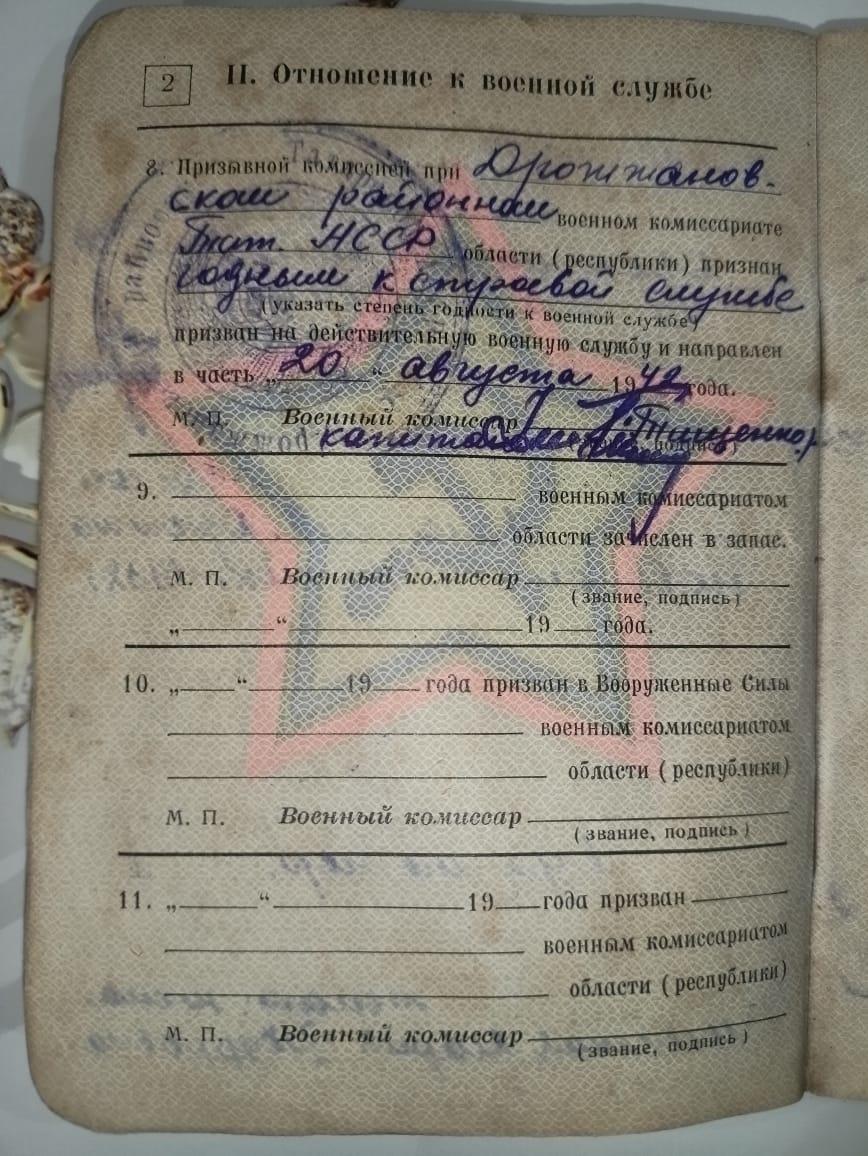 2
II. Отношение к военной службе
8. Призывной комиссией при Дрожжанов-
ском районном военном комиссариате
Тат. АССР области (республики) признан
годным к строевой службе
(указать степень годности к военной службе)
призван на действительную военную службу и направлен
в часть „20“ августа 1942 года.
М. П. Военный комиссар
капитан
подпись)
9. военным комиссариатом
области зачислен в запас.
М. П. Военный комиссар
(звание, подпись)
„ “ 19 года.
10. „ “ 19 года призван в Вооруженные Силы
военным комиссариатом
области (республики)
М. П. Военный комиссар
(звание, подпись)
11. „ “ 19 года призван
военным комиссариатом
области (республики)
М. П. Военный комиссар
(звание, подпись)